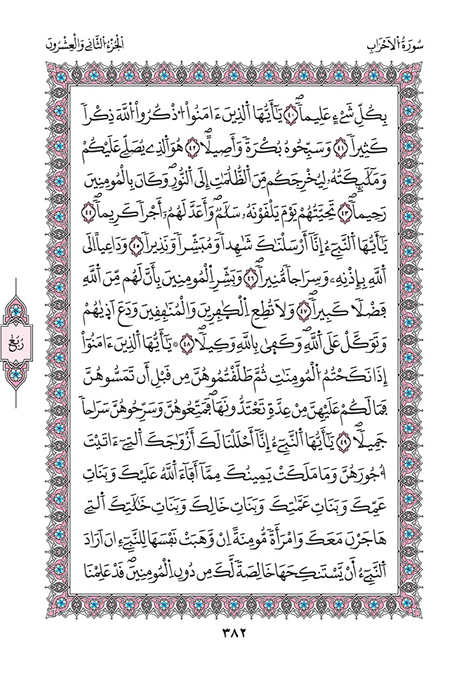 سُورَةُ الاَحْزَابِ
الجُزْءُ الثَّانِي وَالعِشْرُونَ
بِكُلِّ شَےْءٍ عَلِيماٗۖ ٤٠ يَٰٓأَيُّهَا اَ۬لذِينَ ءَامَنُواْ اُ۟ذْكُرُواْ اُ۬للَّهَ ذِكْراٗ
كَثِيراٗ ٤١ وَسَبِّحُوهُ بُكْرَةٗ وَأَصِيلاًۖ ٤٢ هُوَ اَ۬لذِے يُصَلِّے عَلَيْكُمْ
وَمَلَٰٓئِكَتُهُۥ لِيُخْرِجَكُم مِّنَ اَ۬لظُّلُمَٰتِ إِلَى اَ۬لنُّورِۖ وَكَانَ بِالْمُومِنِينَ
رَحِيماٗۖ ٤٣ تَحِيَّتُهُمْ يَوْمَ يَلْقَوْنَهُۥ سَلَٰمٞۖ وَأَعَدَّ لَهُمُۥٓ أَجْراٗ كَرِيماٗۖ ٤٤
يَٰٓأَيُّهَا اَ۬لنَّبِےٓءُ انَّآ أَرْسَلْنَٰكَ شَٰهِداٗ وَمُبَشِّراٗ وَنَذِيراٗ ٤٥ وَدَاعِياً اِلَى
اَ۬للَّهِ بِإِذْنِهِۦ وَسِرَاجاٗ مُّنِيراٗۖ ٤٦ وَبَشِّرِ اِ۬لْمُومِنِينَ بِأَنَّ لَهُم مِّنَ اَ۬للَّهِ
فَضْلاٗ كَبِيراٗۖ ٤٧ وَلَا تُطِعِ اِ۬لْكٰ۪فِرِينَ وَالْمُنَٰفِقِينَ وَدَعَ اَذ۪يٰهُمْ
وَتَوَكَّلْ عَلَى اَ۬للَّهِۖ وَكَف۪يٰ بِاللَّهِ وَكِيلاٗۖ ٤٨ ۞ يَٰٓأَيُّهَا اَ۬لذِينَ ءَامَنُوٓاْ
إِذَا نَكَحْتُمُ اُ۬لْمُومِنَٰتِ ثُمَّ طَلَّقْتُمُوهُنَّ مِن قَبْلِ أَن تَمَسُّوهُنَّ
فَمَا لَكُمْ عَلَيْهِنَّ مِنْ عِدَّةٖ تَعْتَدُّونَهَاۖ فَمَتِّعُوهُنَّ وَسَرِّحُوهُنَّ سَرَاحاٗ
جَمِيلاٗۖ ٤٩ يَٰٓأَيُّهَا اَ۬لنَّبِےٓءُ انَّآ أَحْلَلْنَا لَكَ أَزْوَٰجَكَ اَ۬لتِےٓ ءَاتَيْتَ
أُجُورَهُنَّ وَمَا مَلَكَتْ يَمِينُكَ مِمَّآ أَفَآءَ اَ۬للَّهُ عَلَيْكَ وَبَنَاتِ
عَمِّكَ وَبَنَاتِ عَمَّٰتِكَ وَبَنَاتِ خَالِكَ وَبَنَاتِ خَٰلَٰتِكَ اَ۬لتِے
هَاجَرْنَ مَعَكَ وَامْرَأَةٗ مُّومِنَةً اِنْ وَّهَبَتْ نَفْسَهَا لِلنَّبِےٓءِ انَ اَرَادَ
اَ۬لنَّبِےٓءُ انْ يَّسْتَنكِحَهَا خَالِصَةٗ لَّكَ مِن دُونِ اِ۬لْمُومِنِينَۖ قَدْ عَلِمْنَا
رُبُعْ
٣٨٢